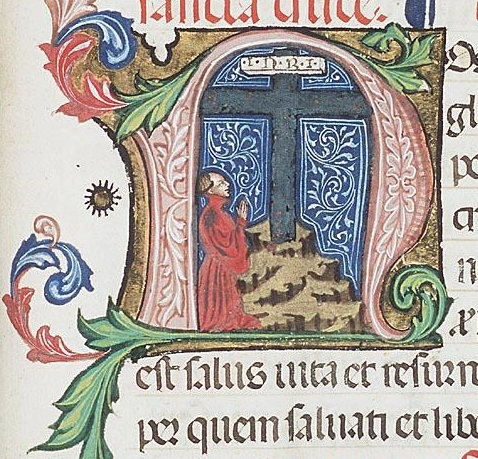 sancta cruce.
I·N·R·I
gl
po
est salus uita et resurr
per quem saluati et libe